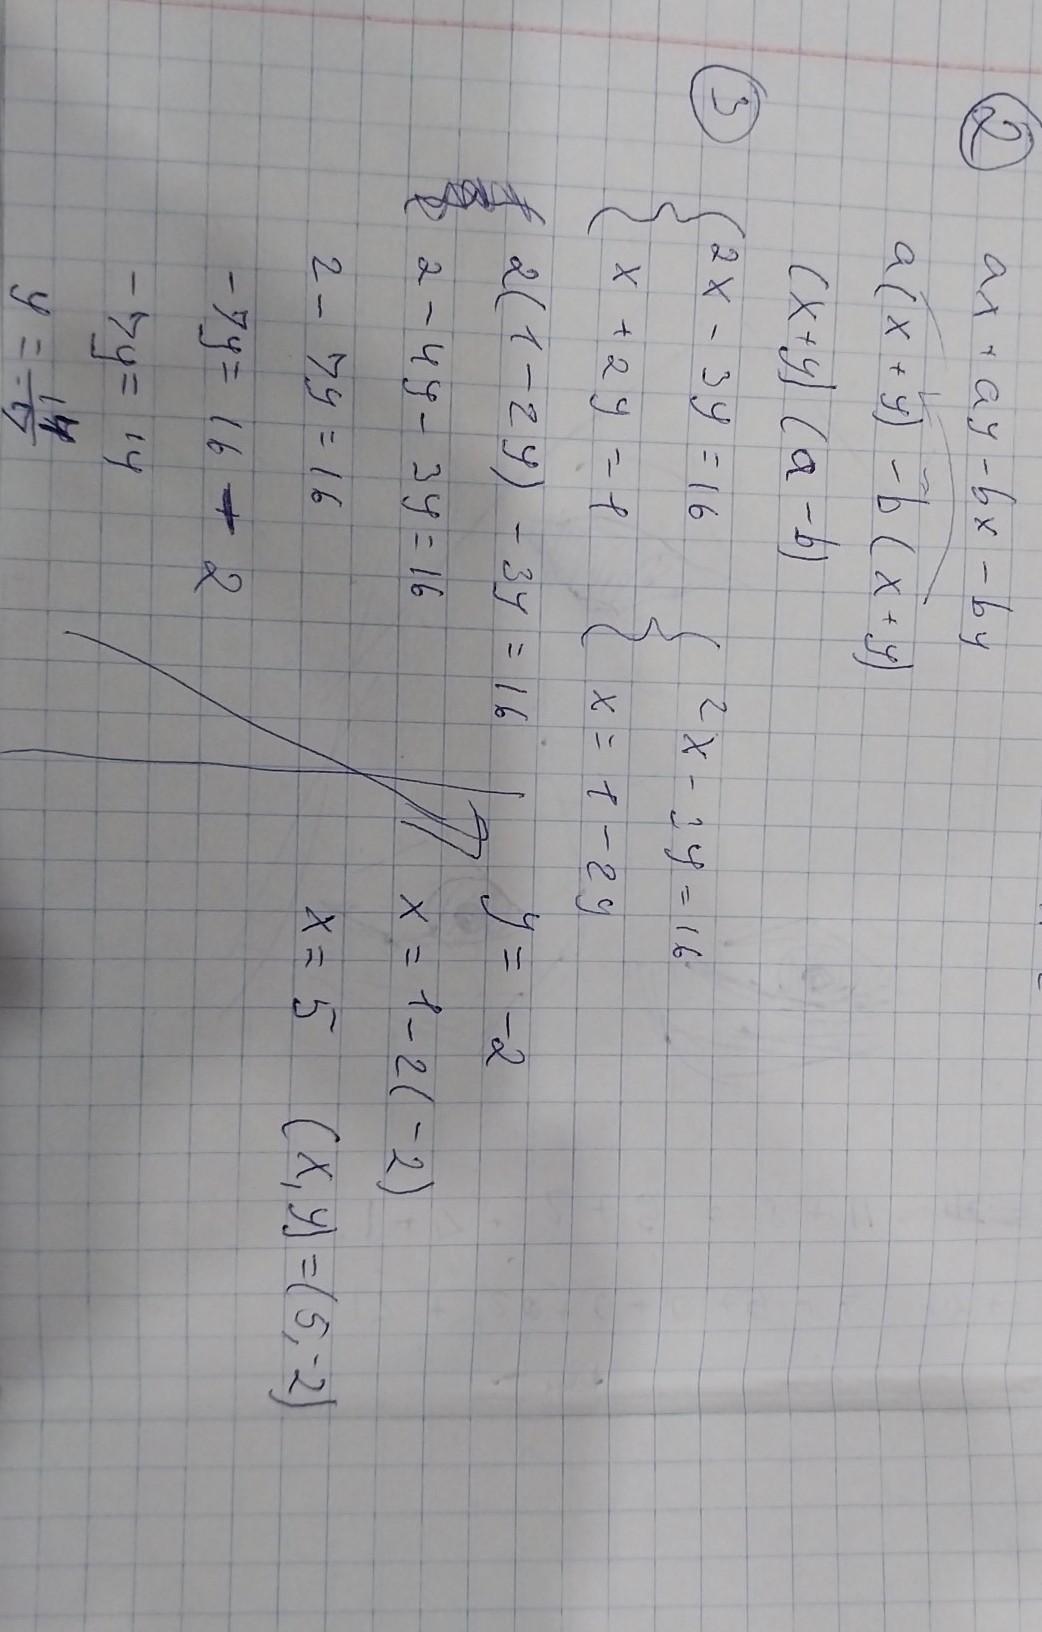 2
ax + ay - bx - by
a(x + y) - b(x + y)
(x+y)(a-b)
3
{ 2x - 3y = 16 { 2x - 3y = 16
x + 2y = 1 x = 1 - 2y
2(1 - 2y) - 3y = 16
2 - 4y - 3y = 16
2 - 7y = 16
-7y = 16 - 2
-7y = 14
y = 14/-7
y = -2
x = 1 - 2(-2)
x = 5 (x,y) = (5,-2)